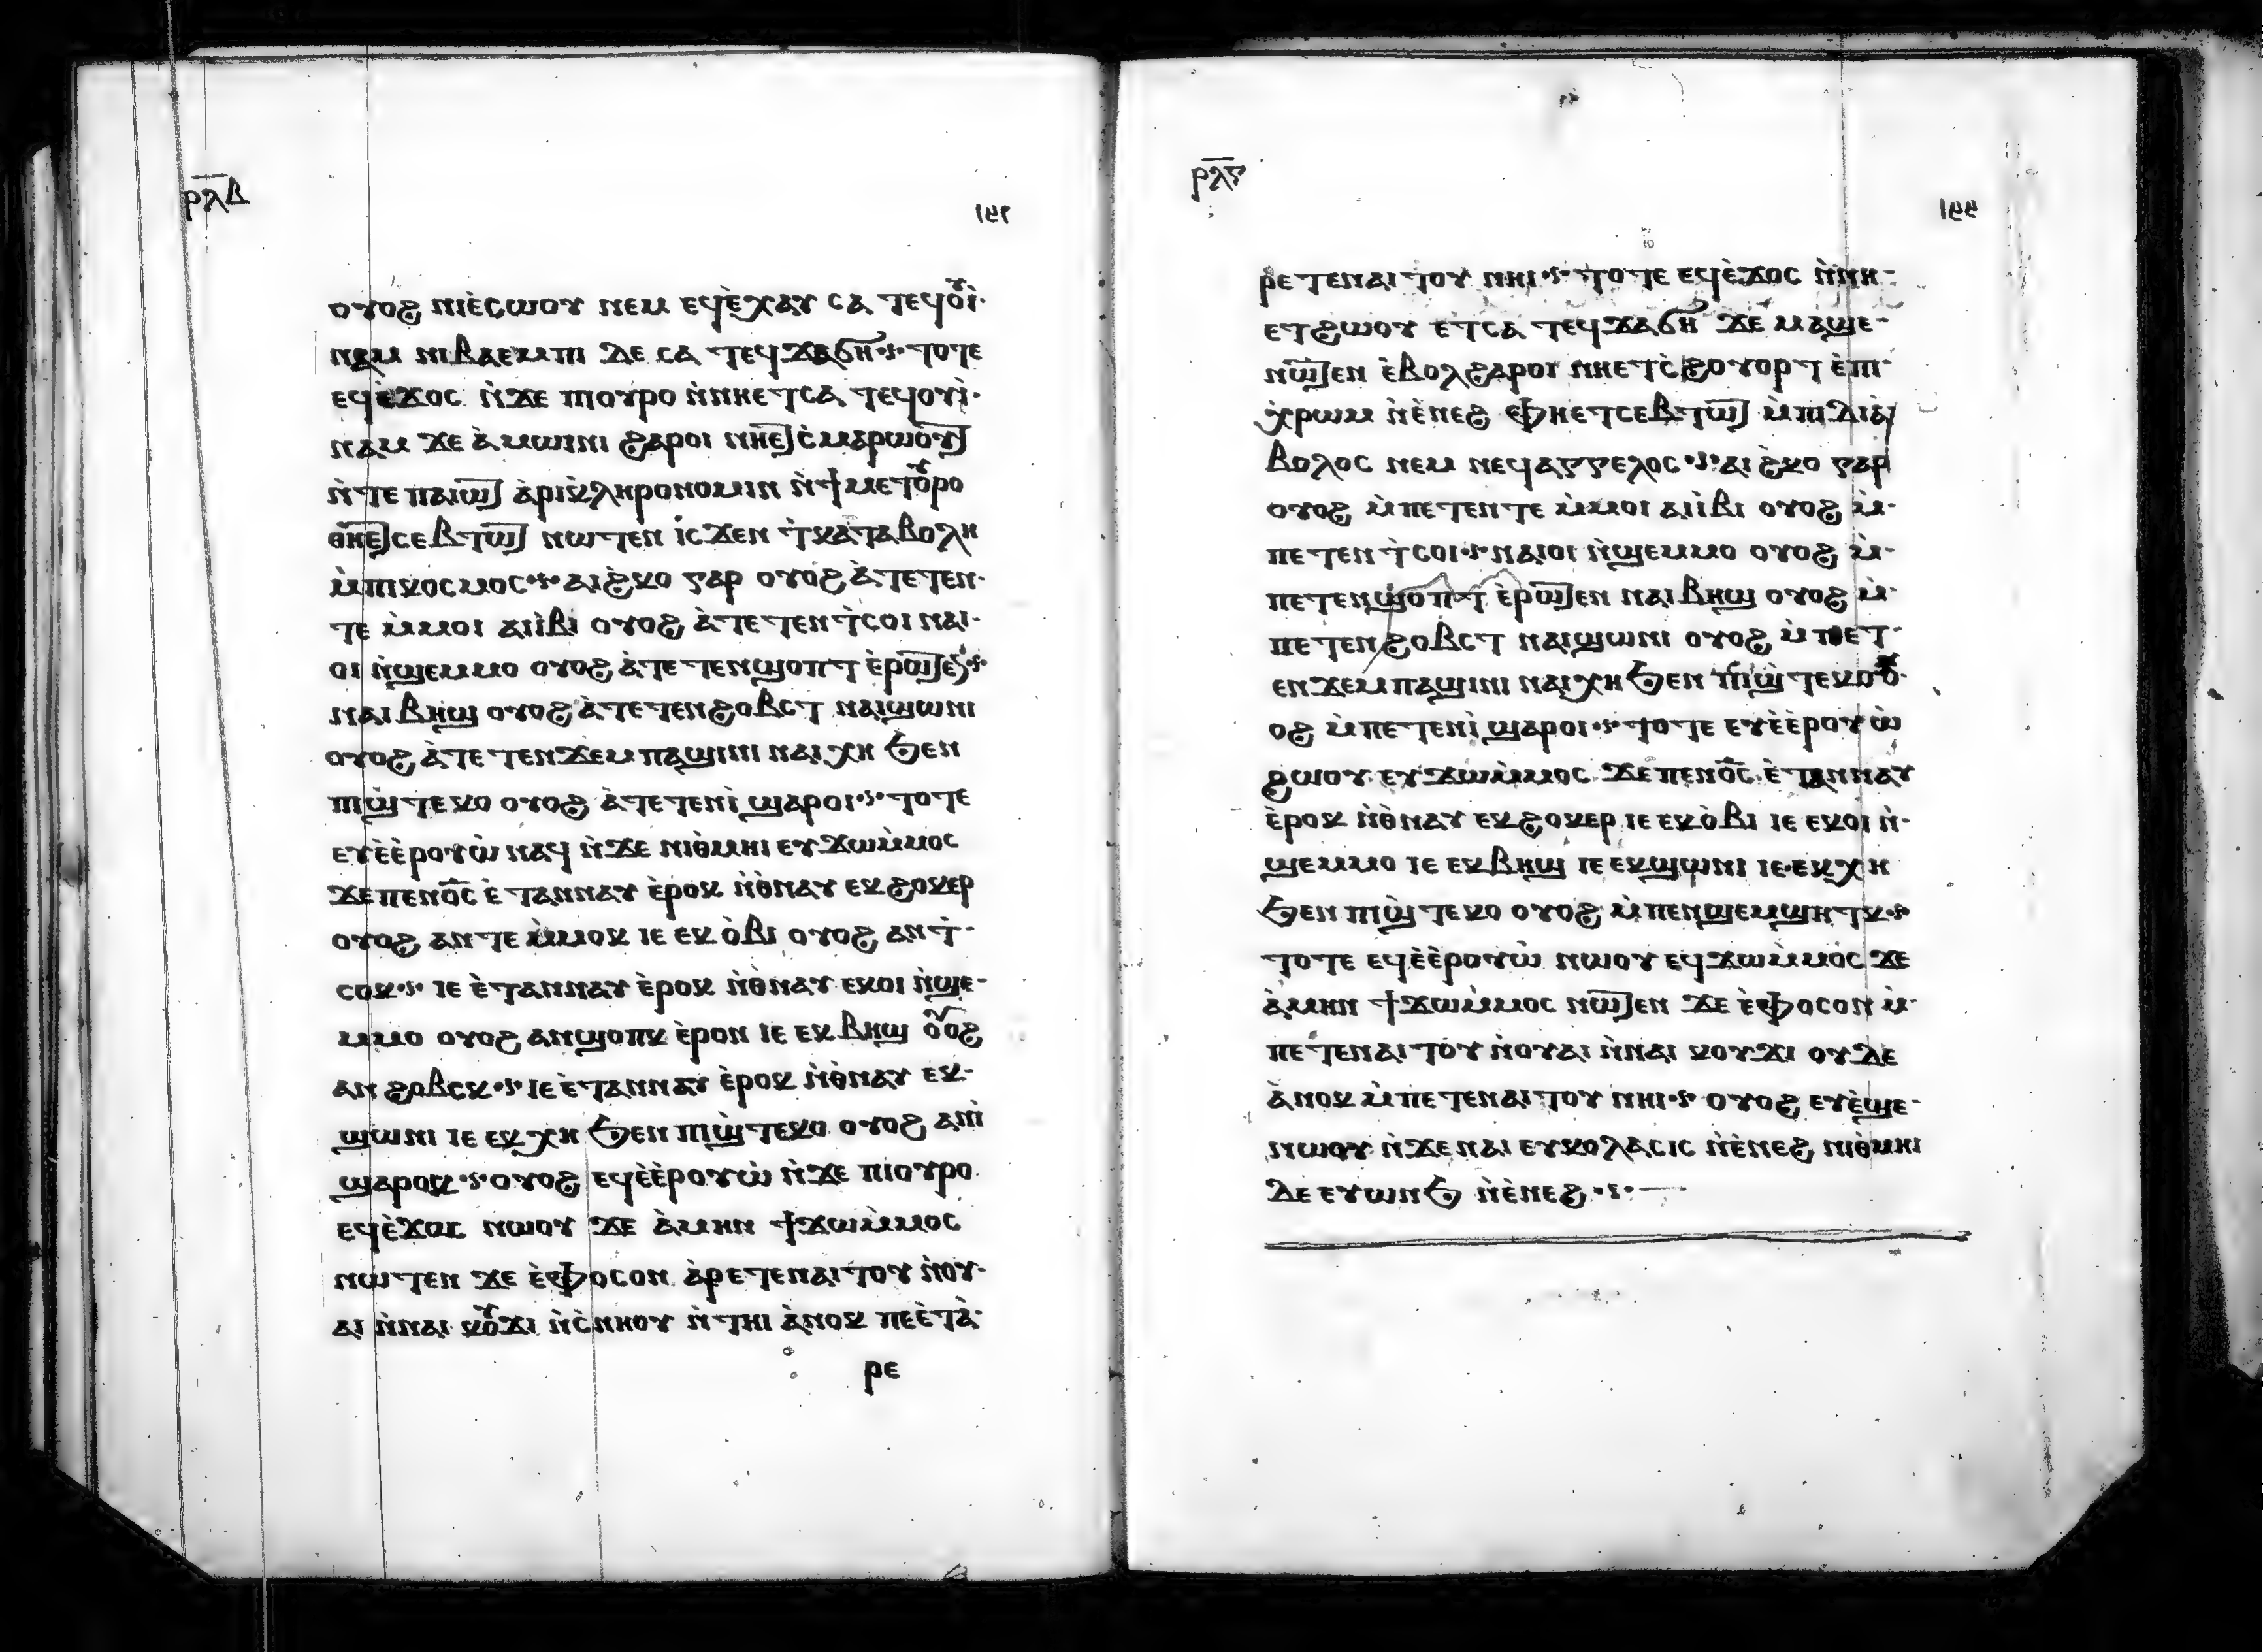 ⲣⲗⲃ
ⲟⲩⲟϩ ⲛⲓⲉ̀ⲥⲱⲟⲩ ⲙⲉⲛ ⲉϥⲉ̀ⲭⲁⲩ ⲥⲁ ⲧⲉϥⲟⲩⲓ̀-
ⲛⲁⲙ ⲛⲓⲃⲁⲉⲙⲡⲓ ⲇⲉ ⲥⲁ ⲧⲉϥϫⲁϭⲏ ⲧⲟⲧⲉ
ⲉϥⲉ̀ϫⲟⲥ ⲛ̀ϫⲉ ⲡⲓⲟⲩⲣⲟ ⲛ̀ⲛⲏⲉⲧⲥⲁ ⲧⲉϥⲟⲩⲓ̀-
ⲛⲁⲙ ϫⲉ ⲁ̀ⲙⲱⲓⲛⲓ ϩⲁⲣⲟⲓ ⲛⲏⲉⲧⲥ̀ⲙⲁⲣⲱⲟⲩⲧ
ⲛ̀ⲧⲉ ⲡⲁⲓⲱⲧ ⲁ̀ⲣⲓⲕ̀ⲗⲏⲣⲟⲛⲟⲙⲓⲛ ⲛ̀ϯⲙⲉⲧⲟⲩⲣⲟ
ⲑⲏⲉⲧⲥⲉⲃⲧⲱⲧ ⲛⲱⲧⲉⲛ ⲓⲥϫⲉⲛ ⲧ̀ⲕⲁⲧⲁⲃⲟⲗⲏ
ⲙ̀ⲡⲓⲕⲟⲥⲙⲟⲥ ⲁⲓϩ̀ⲕⲟ ⲅⲁⲣ ⲟⲩⲟϩ ⲁ̀ⲧⲉⲧⲉⲛ-
ⲧⲉ ⲙ̀ⲙⲟⲓ ⲁⲓⲓ̀ⲃⲓ ⲟⲩⲟϩ ⲁ̀ⲧⲉⲧⲉⲛⲧ̀ⲥⲟⲓ ⲛⲁⲓ-
ⲟⲓ ⲛ̀ϣⲉⲙⲙⲟ ⲟⲩⲟϩ ⲁ̀ⲧⲉⲧⲉⲛϣⲟⲡⲧ ⲉ̀ⲣⲱⲧⲉⲛ
ⲛⲁⲓⲃⲏϣ ⲟⲩⲟϩ ⲁ̀ⲧⲉⲧⲉⲛϩⲟⲃⲥⲧ ⲛⲁⲓϣⲱⲛⲓ
ⲟⲩⲟϩ ⲁ̀ⲧⲉⲧⲉⲛϫⲉⲙⲡⲁϣⲓⲛⲓ ⲛⲁⲓⲭⲏ ϧⲉⲛ
ⲡⲓϣ̀ⲧⲉⲕⲟ ⲟⲩⲟϩ ⲁ̀ⲧⲉⲧⲉⲛⲓ̀ ϣⲁⲣⲟⲓ ⲧⲟⲧⲉ
ⲉⲩⲉ̀ⲉ̀ⲣⲟⲩⲱ̀ ⲛⲁϥ ⲛ̀ϫⲉ ⲛⲓⲑⲙⲏⲓ ⲉⲩϫⲱⲙ̀ⲙⲟⲥ
ϫⲉ ⲡⲉⲛⲟ̅ⲥ̅ ⲉ̀ⲧⲁⲛⲛⲁⲩ ⲉ̀ⲣⲟⲕ ⲛ̀ⲑⲛⲁⲩ ⲉⲕϩⲟⲕⲉⲣ
ⲟⲩⲟϩ ⲁⲛⲧⲉ ⲙ̀ⲙⲟⲕ ⲓⲉ ⲉⲕⲟ̀ⲃⲓ ⲟⲩⲟϩ ⲁⲛⲧ̀-
ⲥⲟⲕ ⲓⲉ ⲉ̀ⲧⲁⲛⲛⲁⲩ ⲉ̀ⲣⲟⲕ ⲛ̀ⲑⲛⲁⲩ ⲉⲕⲟⲓ ⲛ̀ϣⲉ-
ⲙⲙⲟ ⲟⲩⲟϩ ⲁⲛϣⲟⲡⲕ ⲉ̀ⲣⲟⲛ ⲓⲉ ⲉⲕⲃⲏϣ ⲟⲩⲟϩ
ⲁⲛϩⲟⲃⲥⲕ ⲓⲉ ⲉ̀ⲧⲁⲛⲛⲁⲩ ⲉ̀ⲣⲟⲕ ⲛ̀ⲑⲛⲁⲩ ⲉⲕ-
ϣⲱⲛⲓ ⲓⲉ ⲉⲕⲭⲏ ϧⲉⲛ ⲡⲓϣ̀ⲧⲉⲕⲟ ⲟⲩⲟϩ ⲁⲛⲓ̀
ϣⲁⲣⲟⲕ ⲟⲩⲟϩ ⲉϥⲉ̀ⲉ̀ⲣⲟⲩⲱ̀ ⲛ̀ϫⲉ ⲡⲓⲟⲩⲣⲟ
ⲉϥⲉ̀ϫⲟⲥ ⲛⲱⲟⲩ ϫⲉ ⲁ̀ⲙⲏⲛ ϯϫⲱⲙ̀ⲙⲟⲥ
ⲛⲱⲧⲉⲛ ϫⲉ ⲉ̀ⲫⲟⲥⲟⲛ ⲁ̀ⲣⲉⲧⲉⲛⲁⲓⲧⲟⲩ ⲛ̀ⲟⲩ-
ⲁⲓ ⲛ̀ⲛⲁⲓ ⲕⲟⲩϫⲓ ⲛ̀ⲥ̀ⲛⲏⲟⲩ ⲛ̀ⲧⲏⲓ ⲁ̀ⲛⲟⲕ ⲡⲉⲉ̀ⲧⲁ̀-
ⲣⲉ
ⲣⲗⲅ
ⲣⲉⲧⲉⲛⲁⲓⲧⲟⲩ ⲛⲏⲓ ⲧⲟⲧⲉ ⲉϥⲉ̀ϫⲟⲥ ⲛ̀ⲛⲏ-
ⲉⲧϩⲱⲟⲩ ⲉⲧⲥⲁ ⲧⲉϥϫⲁϭⲏ ϫⲉ ⲙⲁϣⲉ-
ⲛⲱⲧⲉⲛ ⲉ̀ⲃⲟⲗϩⲁⲣⲟⲓ ⲛⲏⲉⲧⲥ̀ϩⲟⲩⲟⲣⲧ ⲉ̀ⲡⲓ-
ⲭ̀ⲣⲱⲙ ⲛ̀ⲉ̀ⲛⲉϩ ⲫⲏⲉⲧⲥⲉⲃⲧⲱⲧ ⲙ̀ⲡⲓⲇⲓⲁ̀
ⲃⲟⲗⲟⲥ ⲛⲉⲙ ⲛⲉϥⲁⲅⲅⲉⲗⲟⲥ ⲁⲓϩ̀ⲕⲟ ⲅⲁⲣ
ⲟⲩⲟϩ ⲙ̀ⲡⲉⲧⲉⲛⲧⲉ ⲙ̀ⲙⲟⲓ ⲁⲓⲓ̀ⲃⲓ ⲟⲩⲟϩ ⲙ̀-
ⲡⲉⲧⲉⲛⲧ̀ⲥⲟⲓ ⲛⲁⲓⲟⲓ ⲛ̀ϣⲉⲙⲙⲟ ⲟⲩⲟϩ ⲙ̀-
ⲡⲉⲧⲉⲛϣⲟⲡⲧ ⲉ̀ⲣⲱⲧⲉⲛ ⲛⲁⲓⲃⲏϣ ⲟⲩⲟϩ ⲙ̀-
ⲡⲉⲧⲉⲛϩⲟⲃⲥⲧ ⲛⲁⲓϣⲱⲛⲓ ⲟⲩⲟϩ ⲙ̀ⲡⲉⲧ-
ⲉⲛϫⲉⲙⲡⲁϣⲓⲛⲓ ⲛⲁⲓⲭⲏ ϧⲉⲛ ⲡⲓϣ̀ⲧⲉⲕⲟ ⲟⲩ-
ⲟϩ ⲙ̀ⲡⲉⲧⲉⲛⲓ̀ ϣⲁⲣⲟⲓ ⲧⲟⲧⲉ ⲉⲩⲉ̀ⲉ̀ⲣⲟⲩⲱ̀
ϩⲱⲟⲩ ⲉⲩϫⲱⲙ̀ⲙⲟⲥ ϫⲉ ⲡⲉⲛⲟ̅ⲥ̅ ⲉ̀ⲧⲁⲛⲛⲁⲩ
ⲉ̀ⲣⲟⲕ ⲛ̀ⲑⲛⲁⲩ ⲉⲕϩⲟⲕⲉⲣ ⲓⲉ ⲉⲕⲟ̀ⲃⲓ ⲓⲉ ⲉⲕⲟⲓ ⲛ̀-
ϣⲉⲙⲙⲟ ⲓⲉ ⲉⲕⲃⲏϣ ⲓⲉ ⲉⲕϣⲱⲛⲓ ⲓⲉ ⲉⲕⲭⲏ
ϧⲉⲛ ⲡⲓϣ̀ⲧⲉⲕⲟ ⲟⲩⲟϩ ⲙ̀ⲡⲉⲛϣⲉⲙϣⲏⲧⲕ
ⲧⲟⲧⲉ ⲉϥⲉ̀ⲉ̀ⲣⲟⲩⲱ̀ ⲛⲱⲟⲩ ⲉϥϫⲱⲙ̀ⲙⲟⲥ ϫⲉ
ⲁ̀ⲙⲏⲛ ϯϫⲱⲙ̀ⲙⲟⲥ ⲛⲱⲧⲉⲛ ϫⲉ ⲉ̀ⲫⲟⲥⲟⲛ ⲙ̀-
ⲡⲉⲧⲉⲛⲁⲓⲧⲟⲩ ⲛ̀ⲟⲩⲁⲓ ⲛ̀ⲛⲁⲓ ⲕⲟⲩϫⲓ ⲟⲩⲇⲉ
ⲁ̀ⲛⲟⲕ ⲙ̀ⲡⲉⲧⲉⲛⲁⲓⲧⲟⲩ ⲛⲏⲓ ⲟⲩⲟϩ ⲉⲩⲉ̀ϣⲉ-
ⲛⲱⲟⲩ ⲛ̀ϫⲉ ⲛⲁⲓ ⲉⲩⲕⲟⲗⲁⲥⲓⲥ ⲛ̀ⲉ̀ⲛⲉϩ ⲛⲓⲑⲙⲏⲓ
ⲇⲉ ⲉⲩⲱⲛϧ ⲛ̀ⲉ̀ⲛⲉϩ